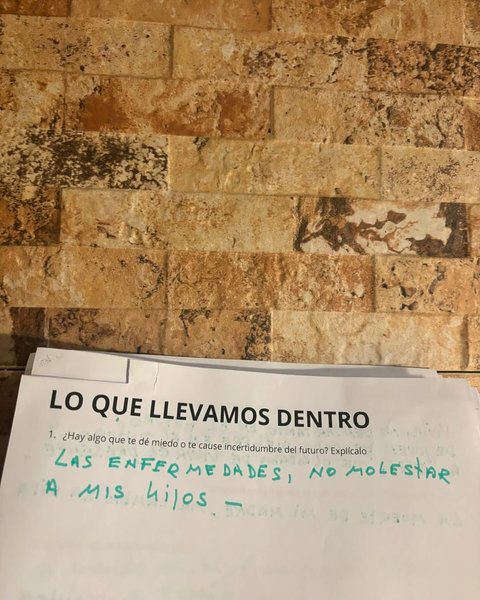 LO QUE LLEVAMOS DENTRO
1. ¿Hay algo que te dé miedo o te cause incertidumbre del futuro? Explícalo
LAS ENFERMEDADES, NO MOLESTAR
A MIS hijos. —